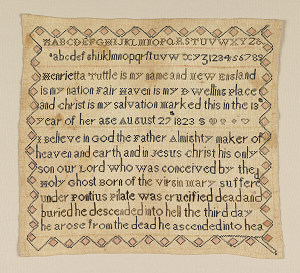 ABCDEFGHIJKLMNOPQRSTUVWXYZ&
abcdefghijklmnopqrstuvwxyz123456789
Henrietta Tuttle is my name and new England
is my nation Fair Haven is my Dwelling Place
and christ is my salvation marked this in the 18th
year of her age August 29th 1823 S
I Believe in God the Father Almighty maker of
heaven and earth and in Jesus christ his only
son our Lord who was conceived by the
Holy Ghost Born of the virgin mary suffered
under Pontius Pilate was crucified dead and
buried he descended into hell the third day
he arose from the dead he ascended into hea